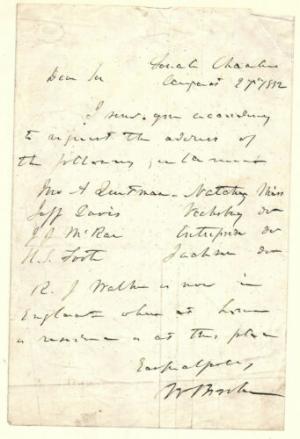 August 27th 1852
Dear Sir
I send you according
to request the address of
the following gentlemen
Jno A Quitman - Natchez Miss
Jeff Davis Vicksburg do
J J McRae Enterprise do
H. S. Foote Jackson do
R. J. Walker is now in
England when at home
is residence is at this place
Respectfully